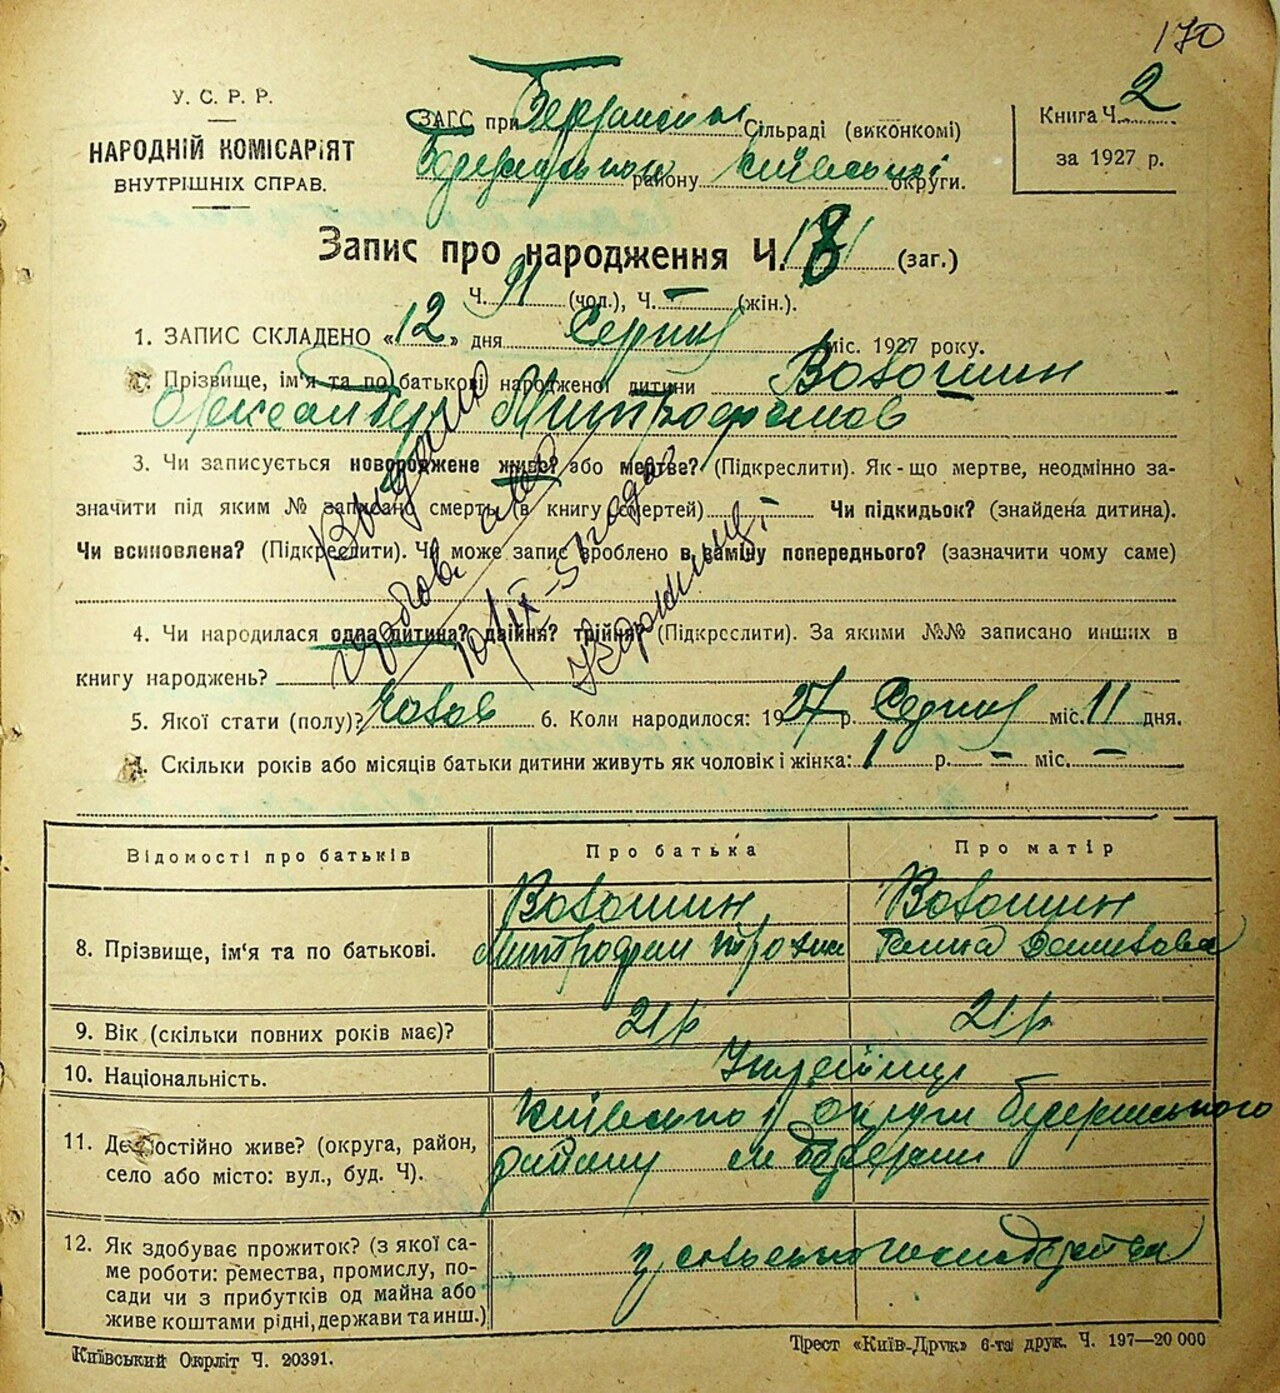 170
У. С. Р. Р.
НАРОДНІЙ КОМІСАРІЯТ
ВНУТРІШНІХ СПРАВ.
ЗАГС при Сільраді (виконкомі)
району Київської округи.
Книга Ч. 2
за 1927 р.
Запис про народження Ч. (заг.)
Ч. 91 (чол.), Ч. — (жін.).
1. ЗАПИС СКЛАДЕНО «12» дня Серпня міс. 1927 року.
Прізвище, ім'я та по батькові народженої дитини Волошин
Олександр Митрофанов
3. Чи записується новороджене живе? або мертве? (Підкреслити). Як-що мертве, неодмінно за-
значити під яким № записано смерть (в книгу смертей) — Чи підкидьок? (знайдена дитина).
Чи всиновлена? (Підкреслити). Чи може запис зроблено в заміну попереднього? (зазначити чому саме)
4. Чи народилася одна дитина? двійня? трійня? (Підкреслити). За якими №№ записано инших в
книгу народжень?
5. Якої стати (полу)? Чолов 6. Коли народилося: 1927 р. Серпня міс. 11 дня.
Скільки років або місяців батьки дитини живуть як чоловік і жінка: 1 р. — міс. —
Відомості про батьків
Про батька
Про матір
8. Прізвище, ім'я та по батькові.
Волошин
Митрофан
Волошин
Ганна Данилова
9. Вік (скільки повних років має)?
21 р
21 р
10. Національність.
Українці
11. Де постійно живе? (округа, район,
село або місто: вул., буд. Ч).
Київської округи
району м
12. Як здобуває прожиток? (з якої са-
ме роботи: ремества, промислу, по-
сади чи з прибутків од майна або
живе коштами рідні, держави та инш.)
з сільського господарства
Київський Окрліт Ч. 20391.
Трест «Київ-Друк» 6-та друк. Ч. 197—20 000